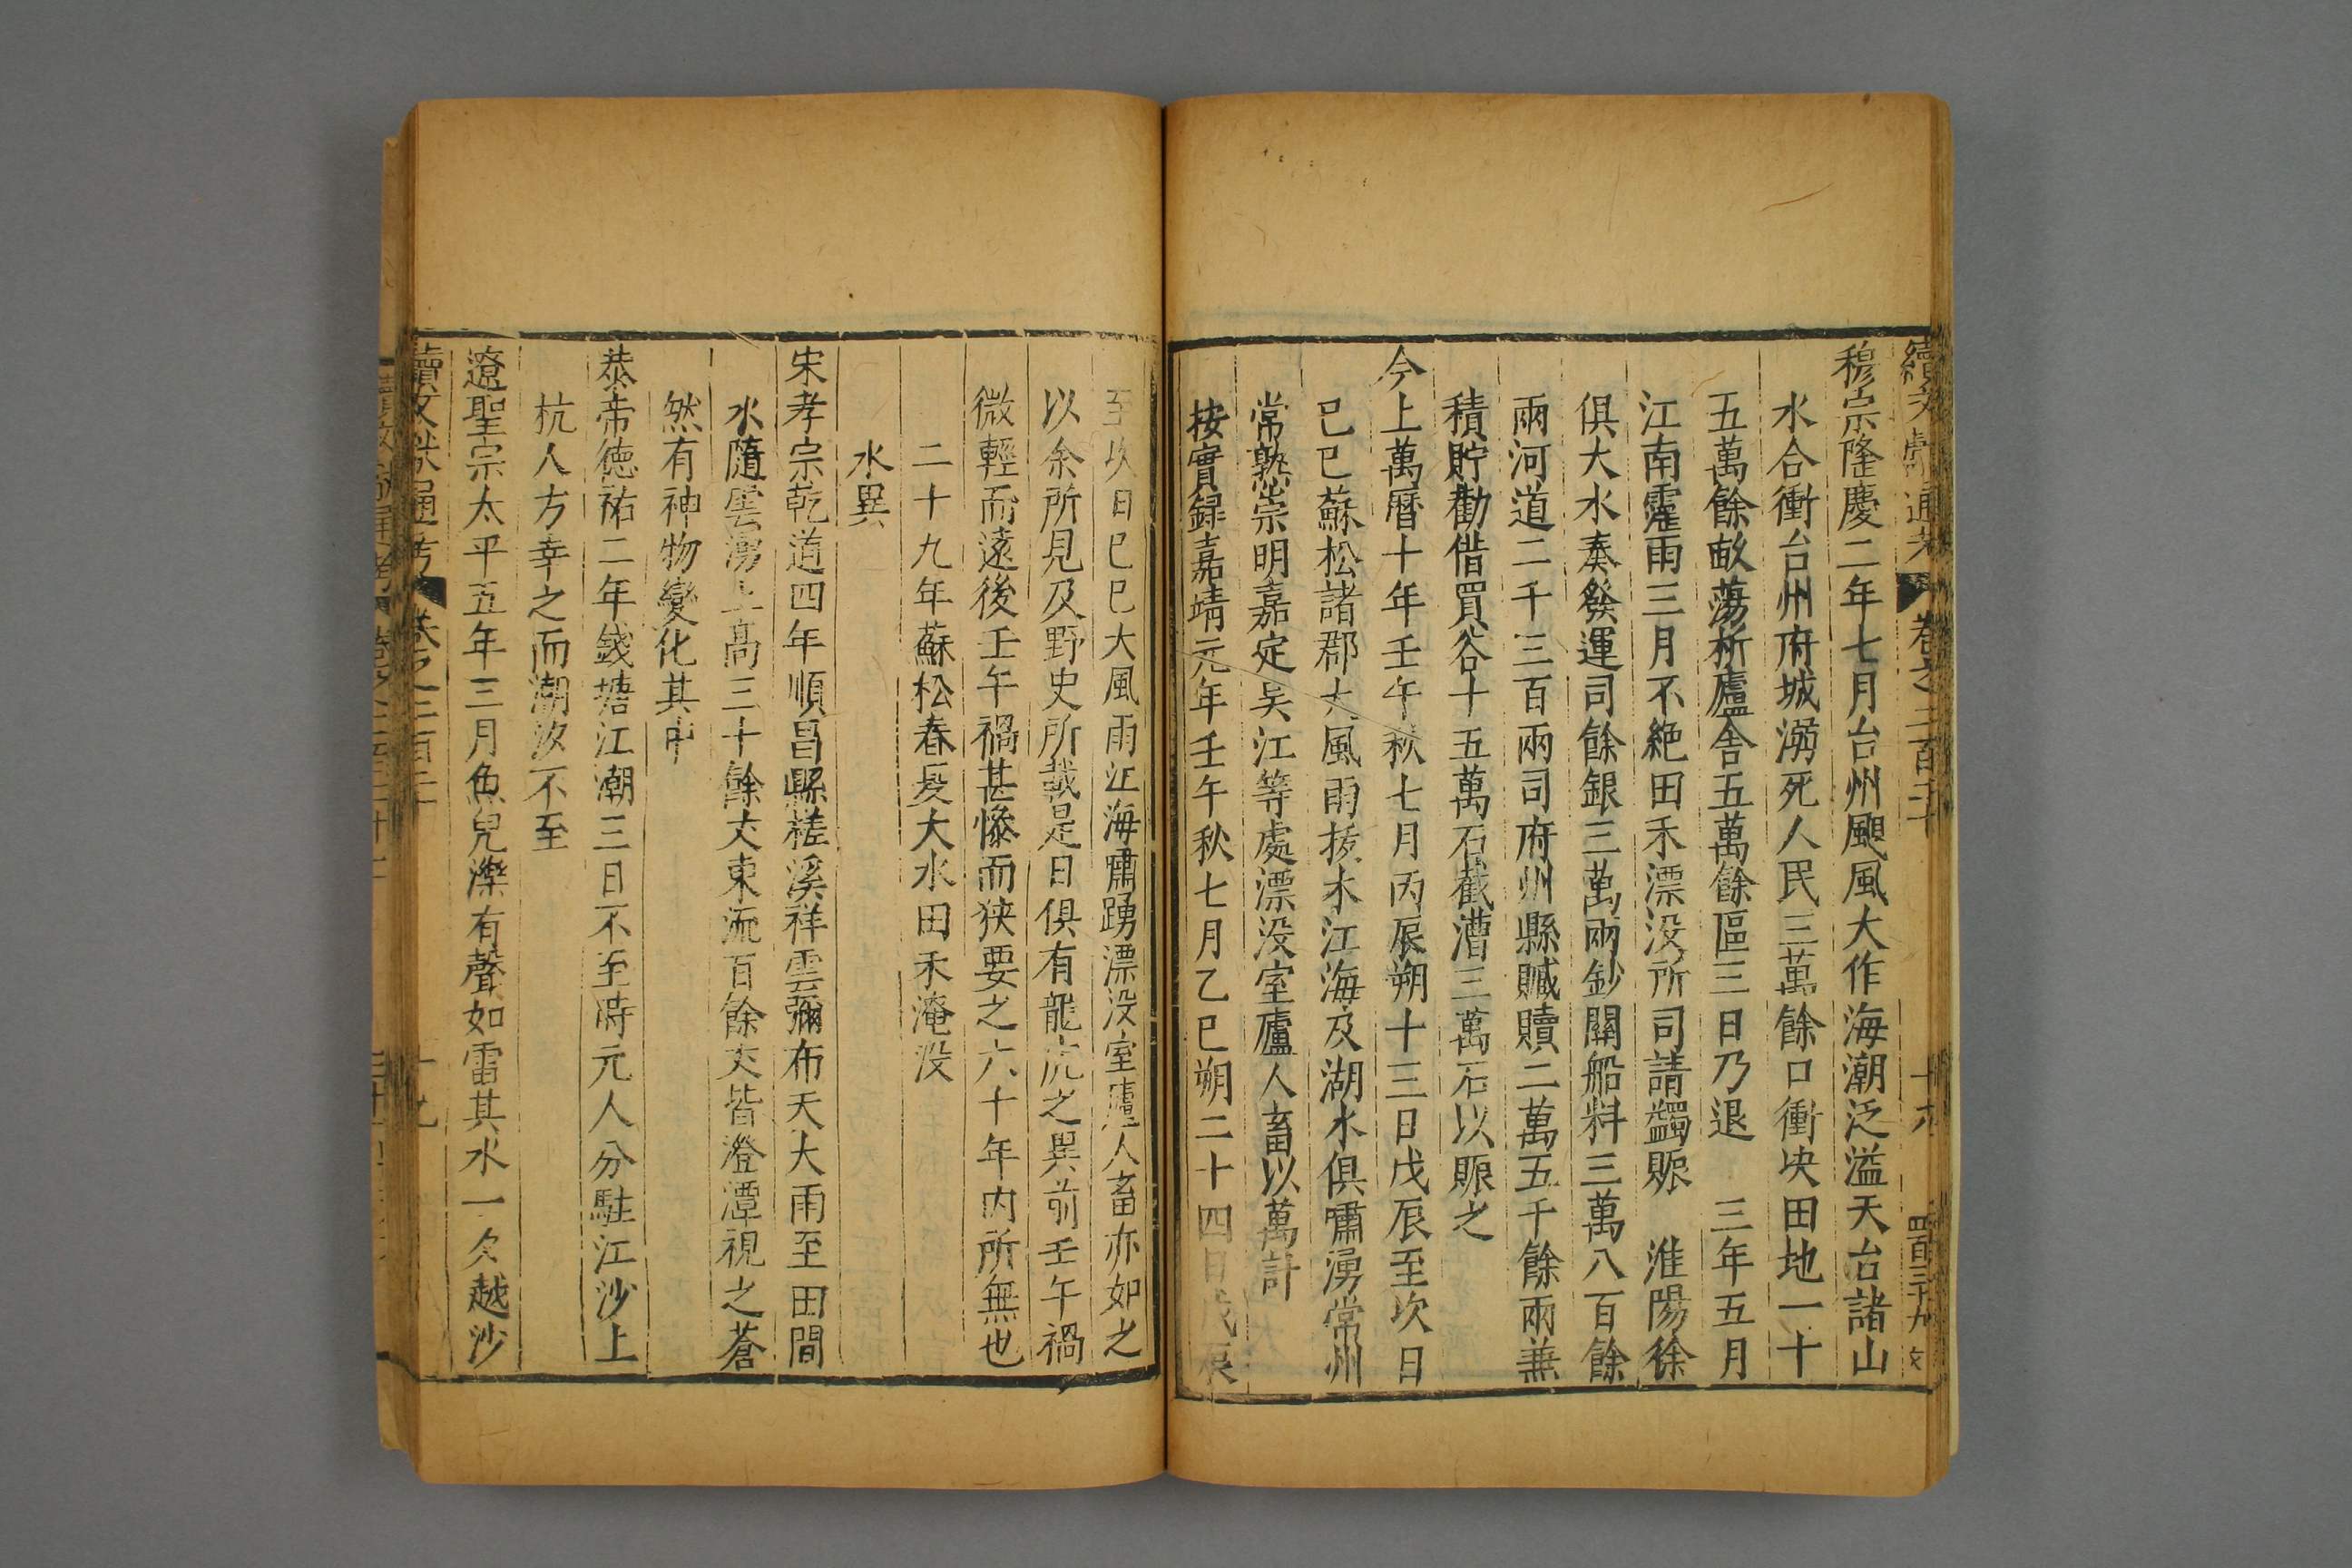 穆宗隆慶二年七月台州颶風大作海潮泛溢天台諸山
水合衝台州府城溺死人民三萬餘口衝决田地一十
五萬餘畝蕩析廬舍五萬餘區三日乃退　三年五月
江南霪雨三月不絶田禾漂没所司請蠲賑　淮陽徐
俱大水奏發運司餘銀三萬兩鈔關船料三萬八百餘
兩河道二千三百兩司府州縣贓贖二萬五千餘兩兼
積貯勸借買谷十五萬石截漕三萬石以賑之
今上萬曆十年壬午秋七月丙辰朔十三日戊辰至次日
己巳蘇松諸郡大風雨拔木江海及湖水俱嘯湧常州
常熟崇明嘉定吴江等處漂没室廬人畜以萬計
按實録嘉靖元年壬午秋七月乙巳朔二十四日戊辰
至次日己巳大風雨江海嘯踴漂没室廬人畜亦如之
以余所見及野史所載是日俱有龍亢之異前壬午禍
微輕而遠後壬午禍甚慘而狹要之六十年内所無也
二十九年蘇松春夏大水田禾淹没
水異
宋孝宗乾道四年順昌縣槎溪祥雲彌布天大雨至田間
水隨雲湧上高三十餘丈東流百餘丈皆澄潭視之蒼
然有神物變化其中
恭帝德祐二年錢塘江潮三日不至時元人分駐江沙上
杭人方幸之而潮汐不至
遼聖宗太平五年三月魚兒濼有聲如雷其水一夕越沙
續文獻通考　卷之二百二十　十九